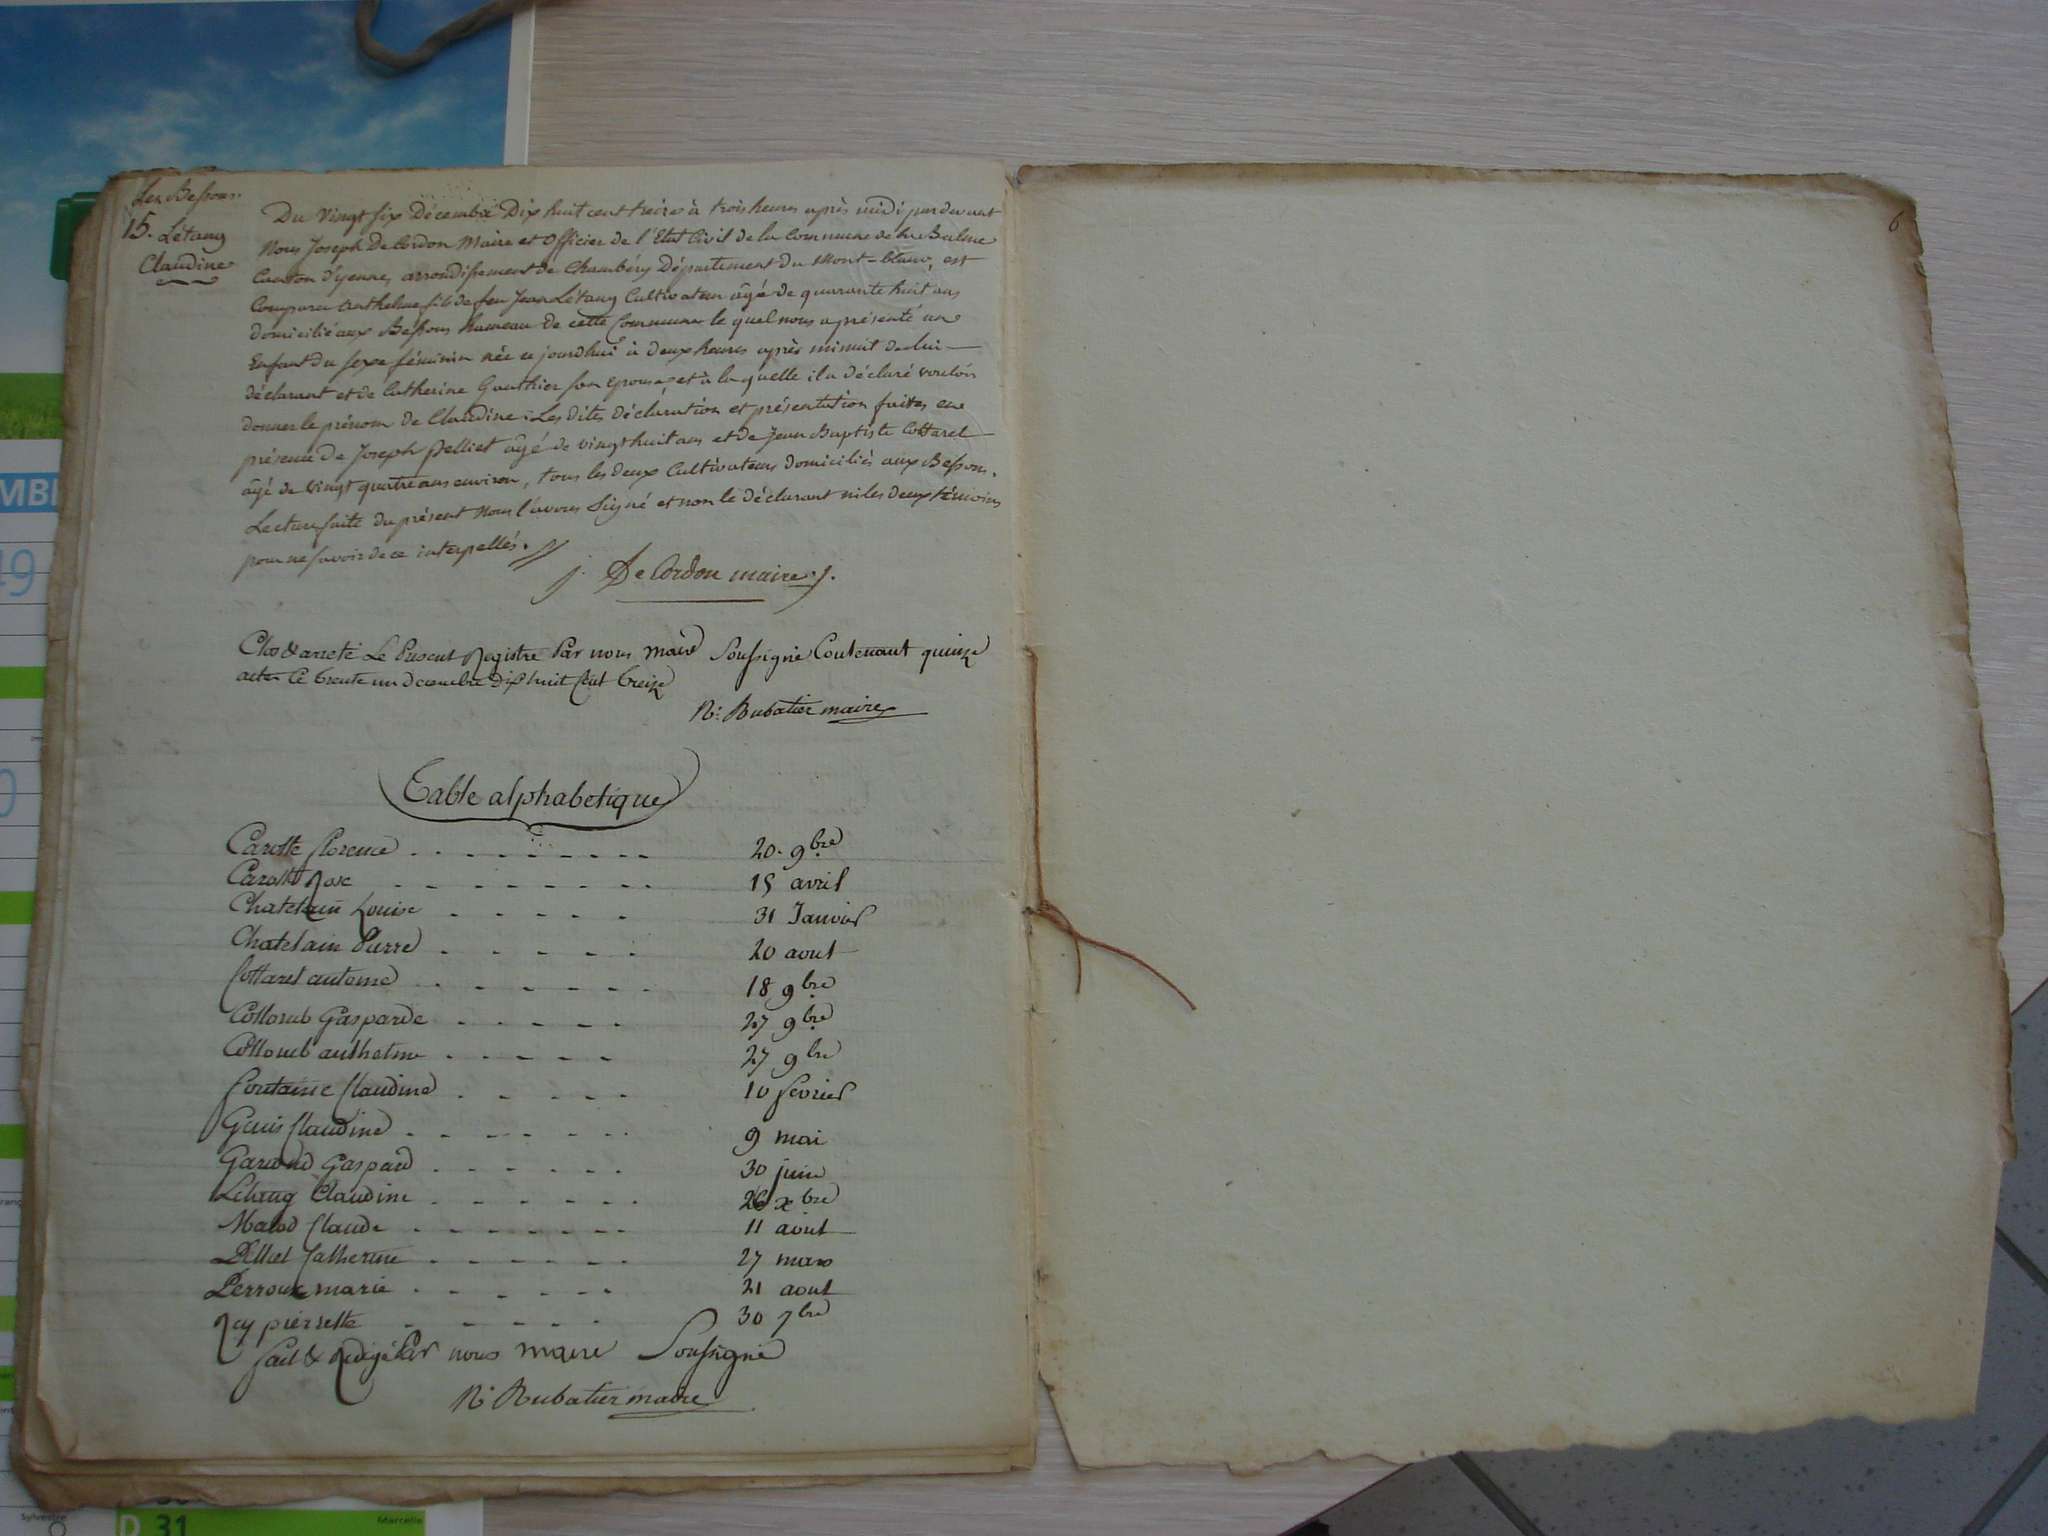 Les Bessons.
15. Létang
Claudine
Du vingt six Décembre Dix huit cent treize à trois heures après midi pardevant
Nous Joseph De Cordon Maire et Officier de l'Etat Civil de la Commune de la Balme
Canton d'yenne, arrondissement de Chambéry Département du Mont-blanc, est
Comparu Anthelme fils de feu Jean Létang Cultivateur âgé de quarante huit ans
domicilié aux Bessons hameau de cette Commune le quel nous a présenté un
Enfant du sexe féminin née ce jourdhui à deux heures après minuit de lui
déclarant et de Catherine Gauthier son epouse, et à la quelle il a déclaré vouloir
donner le prénom de Claudine ; Les dites déclaration et présentation faites en
présence de Joseph Pelliet âgé de vingt huit ans et de Jean Baptiste Cottarel
âgé de vingt quatre ans environ, tous les deux Cultivateurs domiciliés aux Bessons.
Lecture faite du présent Nous l'avons Signé et non le déclarant ni les deux témoins
pour ne savoir de ce interpellés.
j. De Cordon maire j.
Clos & arreté Le Present Registre Par nous maire Soussigné Contenant quinze
actes Ce trente un decembre Dix huit Cent treize
N: Rubatier maire
Table alphabetique
Carotte florence . . . . . . . . . 20. 9bre
Carotte Rose . . . . . . . . 15 avril
Chatelain Louise . . . . . 31 Janvier
Chatelain Pierre . . . . . . 20 aout
Cottarel antoine . . . . . . . 18 9bre
Collomb Gasparde . . . . . 27 9bre
Collomb anthelme . . . . . 27 9bre
fontaine Claudine . . . . . 10 fevrier
Genis Claudine . . . . . . 9 mai
Garoud Gaspard . . . . . . 30 juin
Létang Claudine . . . . . . 26 xbre
Marod Claude . . . . . . . 11 aout
Pelliet Catherine . . . . . . 27 mars
Perroux marie . . . . . . 21 aout
Rey pierrette . . . . . 30 7bre
fait & Redigé Par nous maire Soussigné
N: Rubatier maire
6
MBI
49
0
Sylvestre
D 31
Marcelle